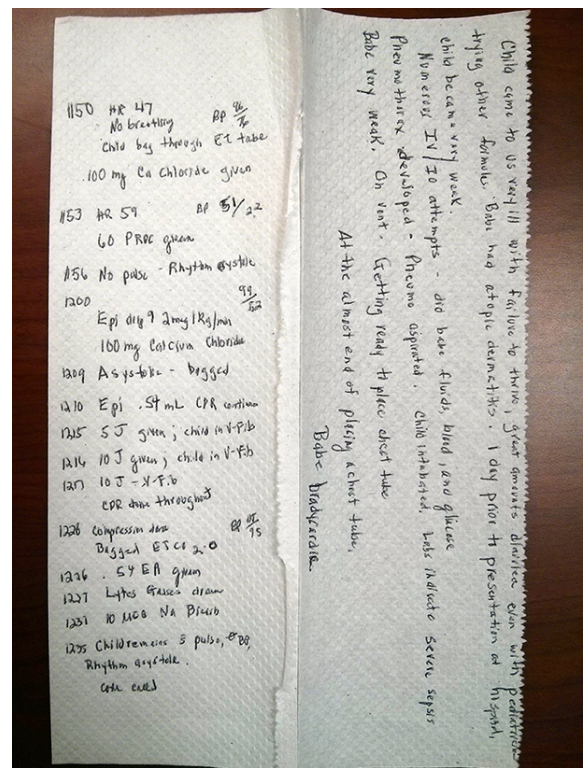 1150 HR 47 BP 96/76
No breathing
Child bag through ET tube
.100 mg Ca Chloride given
1153 HR 59 BP 51/22
60 PRBC given
1156 No pulse - Rhythm asystole
1200 99/52
Epi drip 9 2mcg/kg/min
100 mg Calcium Chloride
1209 Asystole - bagged
1210 Epi .54 mL CPR continue
1215 5 J given; child in V-Fib
1216 10 J given; child in V-Fib
1217 10 J - V-Fib
CPR done throughout
1226 Compression done BP
Bagged ETCO2 2.0
1226 .54 given
1227 Lytes Gasses drawn
1231 10 Na Bicarb
1235 Child remains s̄ pulse, BP,
Rhythm asystole.
Code called
Child came to us very ill with failure to thrive, great amounts diarrhea even with pediatrics
trying other formulas. Babe had atopic dermatitis. 1 day prior to presentation at hospital,
child became very weak.
Numerous IV/IO attempts - did babe fluids, blood, and glucose
Pneumothorax developed - Pneumo aspirated. Child intubated. Labs indicate severe sepsis
Babe very weak. On vent. Getting ready to place chest tube
At the almost end of placing a chest tube,
Babe bradycardia.